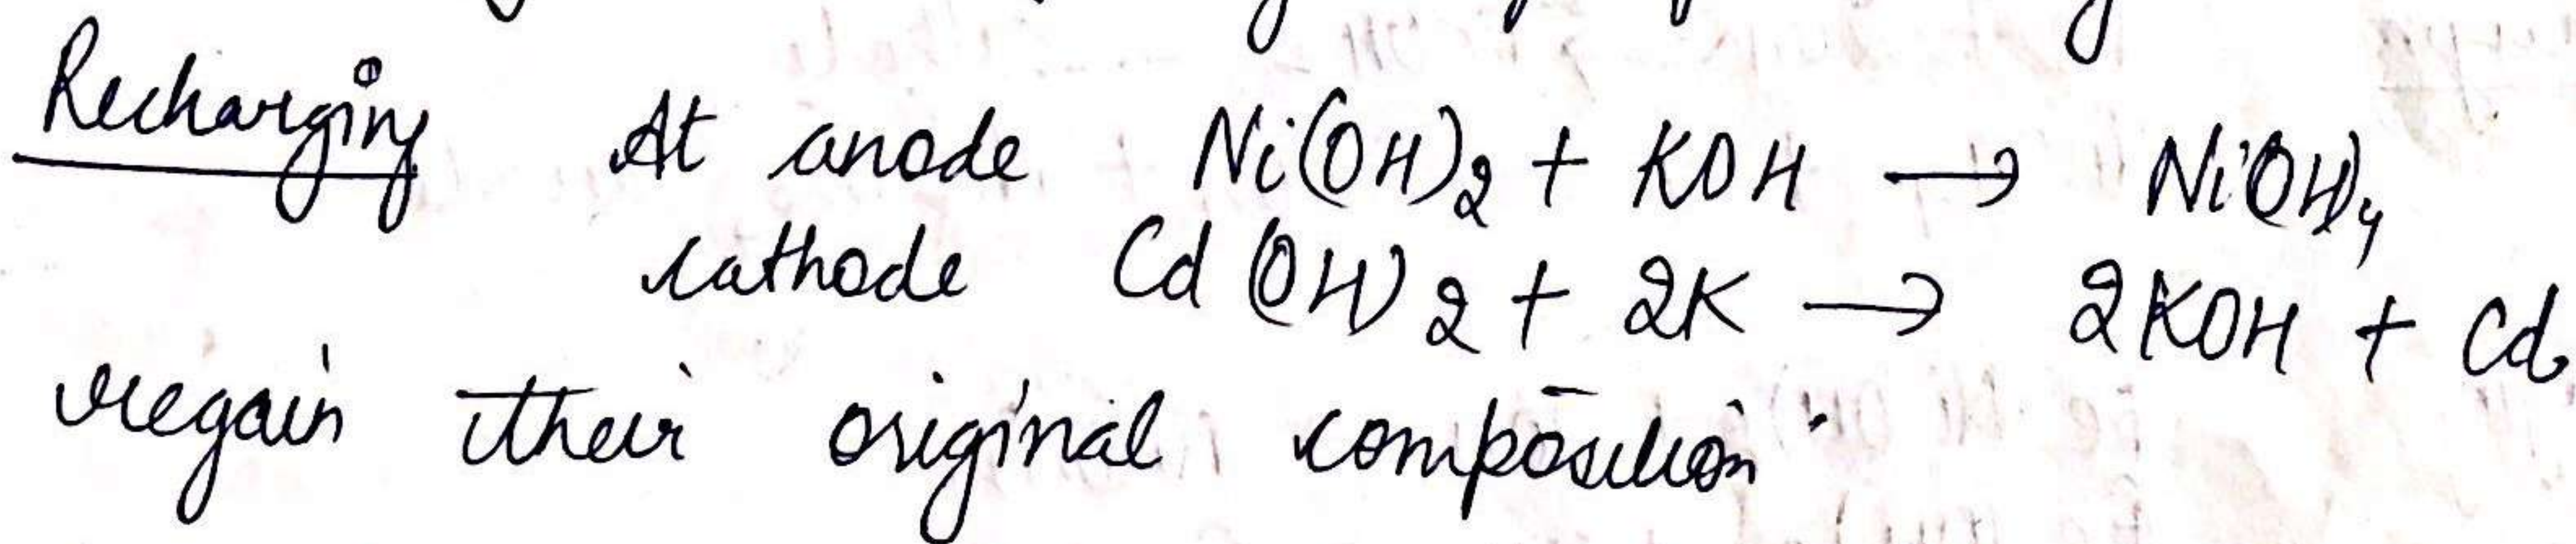 Recharging At anode Ni(OH)2 + KOH → Ni(OH)4
cathode Cd (OH)2 + 2K → 2KOH + Cd
regain their original composition.